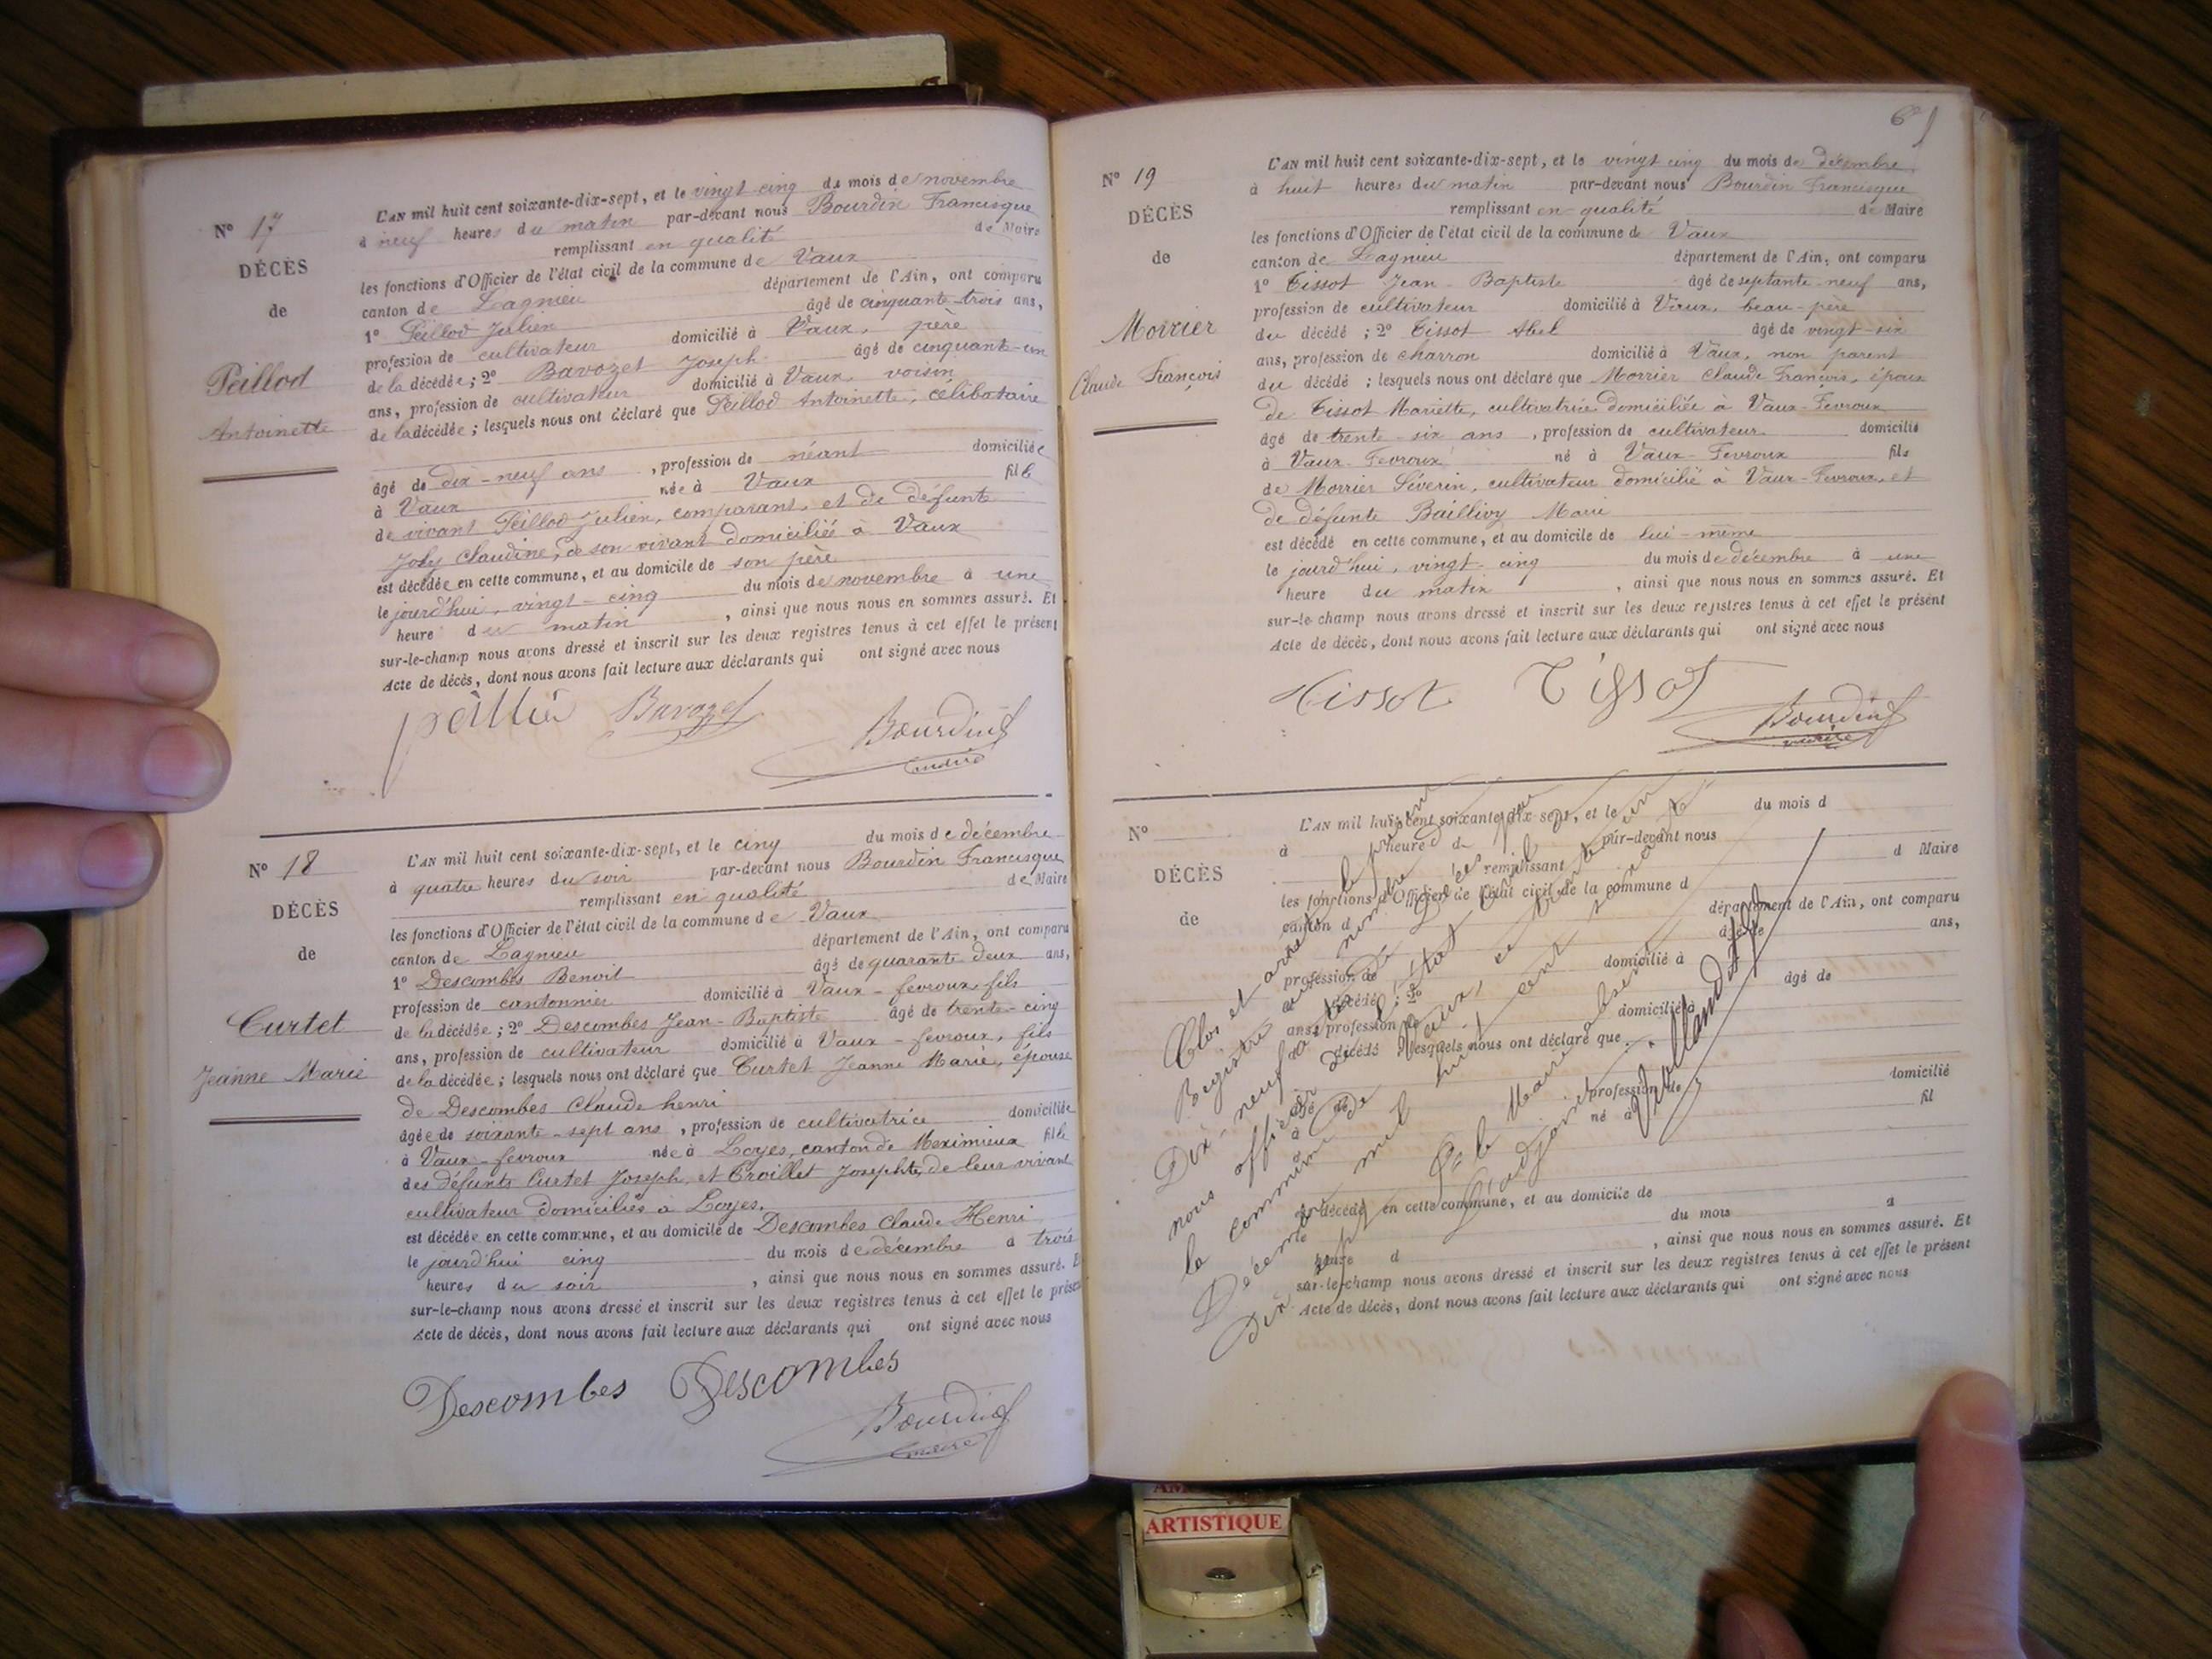 N° 17
DÉCÈS
de
Peillod
Antoinette
L'AN mil huit cent soixante-dix-sept, et le vingt cinq du mois de novembre
à neuf heures du matin par-devant nous Bourdin Francisque
remplissant en qualité de Maire
les fonctions d'Officier de l'état civil de la commune de Vaux
canton de Lagnieu département de l'Ain, ont comparu
1° Peillod Julien âgé de cinquante-trois ans,
profession de cultivateur domicilié à Vaux, père
de la décédée; 2° Bavozet Joseph âgé de cinquante-un
ans, profession de cultivateur domicilié à Vaux, voisin
de la décédée; lesquels nous ont déclaré que Peillod Antoinette, célibataire
âgé de dix-neuf ans, profession de néant domiciliée
à Vaux née à Vaux fille
de vivant Peillod Julien, comparant, et de défunte
Joly Claudine, de son vivant domiciliée à Vaux
est décédée en cette commune, et au domicile de son père
le jourd'hui, vingt-cinq du mois de novembre à une
heure du matin, ainsi que nous nous en sommes assuré. Et
sur-le-champ nous avons dressé et inscrit sur les deux registres tenus à cet effet le présent
Acte de décès, dont nous avons fait lecture aux déclarants qui ont signé avec nous
Bavozet
Bourdin
maire
N° 18
DÉCÈS
de
Curtet
Jeanne Marie
L'AN mil huit cent soixante-dix-sept, et le cinq du mois de décembre
à quatre heures du soir par-devant nous Bourdin Francisque
remplissant en qualité de Maire
les fonctions d'Officier de l'état civil de la commune de Vaux
canton de Lagnieu département de l'Ain, ont comparu
1° Descombes Benoit âgé de quarante deux ans,
profession de cantonnier domicilié à Vaux-fevroux, fils
de la décédée; 2° Descombes Jean-Baptiste âgé de trente-cinq
ans, profession de cultivateur domicilié à Vaux-fevroux, fils
de la décédée; lesquels nous ont déclaré que Curtet Jeanne Marie, épouse
de Descombes Claude henri
âgée de soixante-sept ans, profession de cultivatrice domiciliée
à Vaux-fevroux née à Loyes, canton de Meximieux fille
des défunts Curtet Joseph, et Croillet Josephte, de leur vivant
cultivateur domiciliés à Loyes.
est décédée en cette commune, et au domicile de Descombes Claude Henri
le jourd'hui cinq du mois de décembre à trois
heures du soir, ainsi que nous nous en sommes assuré. Et
sur-le-champ nous avons dressé et inscrit sur les deux registres tenus à cet effet le présent
Acte de décès, dont nous avons fait lecture aux déclarants qui ont signé avec nous
Descombes Descombes
Bourdin
maire
N° 19
DÉCÈS
de
Morrier
Claude François
L'AN mil huit cent soixante-dix-sept, et le vingt cinq du mois de décembre
à huit heures du matin par-devant nous Bourdin Francisque
remplissant en qualité de Maire
les fonctions d'Officier de l'état civil de la commune de Vaux
canton de Lagnieu département de l'Ain, ont comparu
1° Tissot Jean-Baptiste âgé de septante-neuf ans,
profession de cultivateur domicilié à Vaux, beau-père
du décédé; 2° Tissot Abel âgé de vingt-six
ans, profession de charron domicilié à Vaux, non parent
du décédé; lesquels nous ont déclaré que Morrier Claude François, époux
de Tissot Mariette, cultivatrice domiciliée à Vaux-Fevroux
âgé de trente-six ans, profession de cultivateur domicilié
à Vaux-Fevroux né à Vaux-Fevroux fils
de Morrier Séverin, cultivateur domicilié à Vaux-Fevroux, et
de défunte Baillivy Marie
est décédé en cette commune, et au domicile de lui-même
le jourd'hui, vingt-cinq du mois de décembre à une
heure du matin, ainsi que nous nous en sommes assuré. Et
sur-le-champ nous avons dressé et inscrit sur les deux registres tenus à cet effet le présent
Acte de décès, dont nous avons fait lecture aux déclarants qui ont signé avec nous
Tissot Tissot
Bourdin
maire
N°
DÉCÈS
de
L'AN mil huit cent soixante-dix-sept, et le du mois d
à heure d par-devant nous
remplissant d Maire
les fonctions d'Officier de l'état civil de la commune d
canton d département de l'Ain, ont comparu
âgé de ans,
profession de domicilié à
décédé; 2° âgé de
ans, profession de domicilié à
décédé; lesquels nous ont déclaré que
âgé de profession de domicilié
à né à fil
de
est décédé en cette commune, et au domicile de
du mois à
heure d, ainsi que nous nous en sommes assuré. Et
sur-le-champ nous avons dressé et inscrit sur les deux registres tenus à cet effet le présent
Acte de décès, dont nous avons fait lecture aux déclarants qui ont signé avec nous
Clos et arrêté le présent
Registre au nombre de
Dix-neuf actes de Décès par
nous officier de l'état civil de
la commune de Vaux, ce trente un
Décembre mil huit cent soixante
dix sept
Pr le Maire absent
L'adjoint
AM
ARTISTIQUE